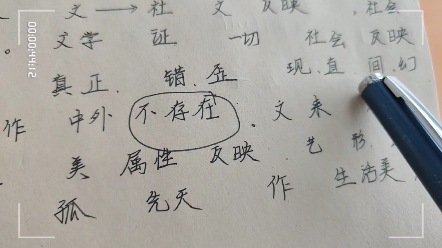 文 → 社 文 反映 社会
。 文学 证 一切 社会 反映
真正. 错. 歪 现. 直. 间. 幻
作 中外 不存在. 文 来
美 属性 反映 . 艺 形.
孤 先天 作 生活美
00:00:12